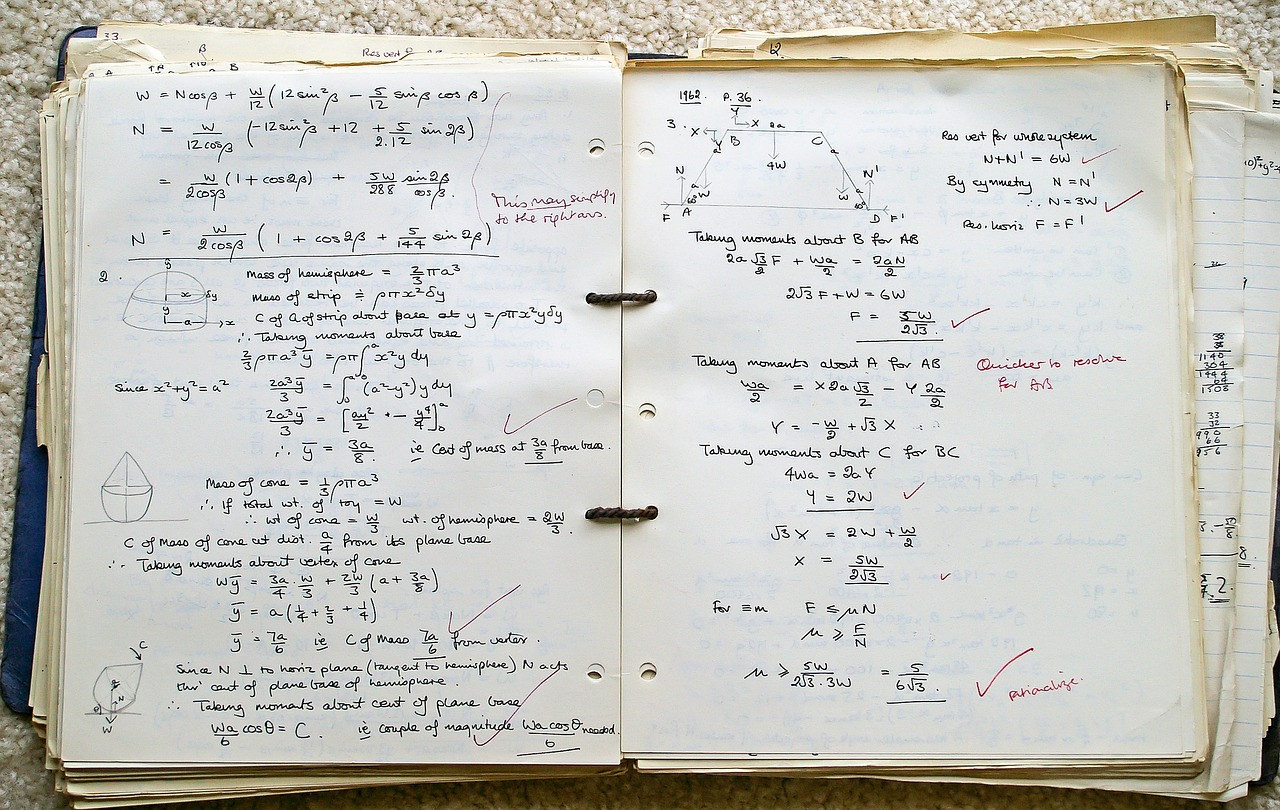 33.
β
Res vert
A B
W = Ncosβ + W/12 (12 sin²β − 5/12 sinβ cosβ)
N = W/12cosβ (−12sin²β + 12 + 5/2.12 sin 2β)
= W/2cosβ (1 + cos2β) + 5W/288 sin2β/cosβ.
This may simplify
to the right ans.
N = W/2cosβ (1 + cos2β + 5/144 sin 2β)
2.
y
x δy
y
a x
Mass of hemisphere = 2/3 πa³
Mass of strip ≑ ρπx²δy
C of G of strip about base at y = ρπx²yδy
∴ Taking moments about base
2/3 ρπa³ȳ = ρπ∫₀ᵃ x²y dy
Since x²+y² = a² 2a³ȳ/3 = ∫₀ᵃ (a²−y²) y dy
2a³ȳ/3 = [ay²/2 − y⁴/4]₀ᵃ
∴ ȳ = 3a/8 ie Cent of mass at 3a/8 from base.
Mass of cone = 1/3 ρπa³
∴ If total wt. of toy = W
∴ wt of cone = W/3 wt. of hemisphere = 2W/3.
C of Mass of cone at dist. a/4 from its plane base
∴ Taking moments about vertex of cone
Wȳ = 3a/4 . W/3 + 2W/3 (a + 3a/8)
ȳ = a(1/4 + 2/3 + 1/4)
ȳ = 7a/6 ie C of Mass 7a/6 from vertex.
C
θ N
W
Since N ⊥ to horiz plane (tangent to hemisphere) N acts
thro' cent of plane base of hemisphere.
∴ Taking moments about cent of plane base
Wa/6 cosθ = C. ie couple of magnitude Wa cosθ/6 needed.
12.
1962. P. 36.
3.
Y
X X 2a
B C
Y a 4W a
N N'
a W W a
60° 60°
F A D F'
Res vert for whole system
N+N' = 6W
By symmetry N = N'
∴ N = 3W
Res. horiz F = F'
Taking moments about B for AB
2a √3/2 F + Wa/2 = 2aN/2
2√3 F + W = 6W
F = 5W/2√3.
Taking moments about A for AB
Quicker to resolve
for AB
Wa/2 = X 2a √3/2 − Y 2a/2
Y = −W/2 + √3 X
Taking moments about C for BC
4Wa = 2aY
Y = 2W
√3 X = 2W + W/2
X = 5W/2√3
For ≡m F ≤ μN
μ ≥ F/N
μ ≥ 5W/2√3.3W = 5/6√3.
rationalize.
38
38
1140
304
1444
64
1508
33
32
990
66
956